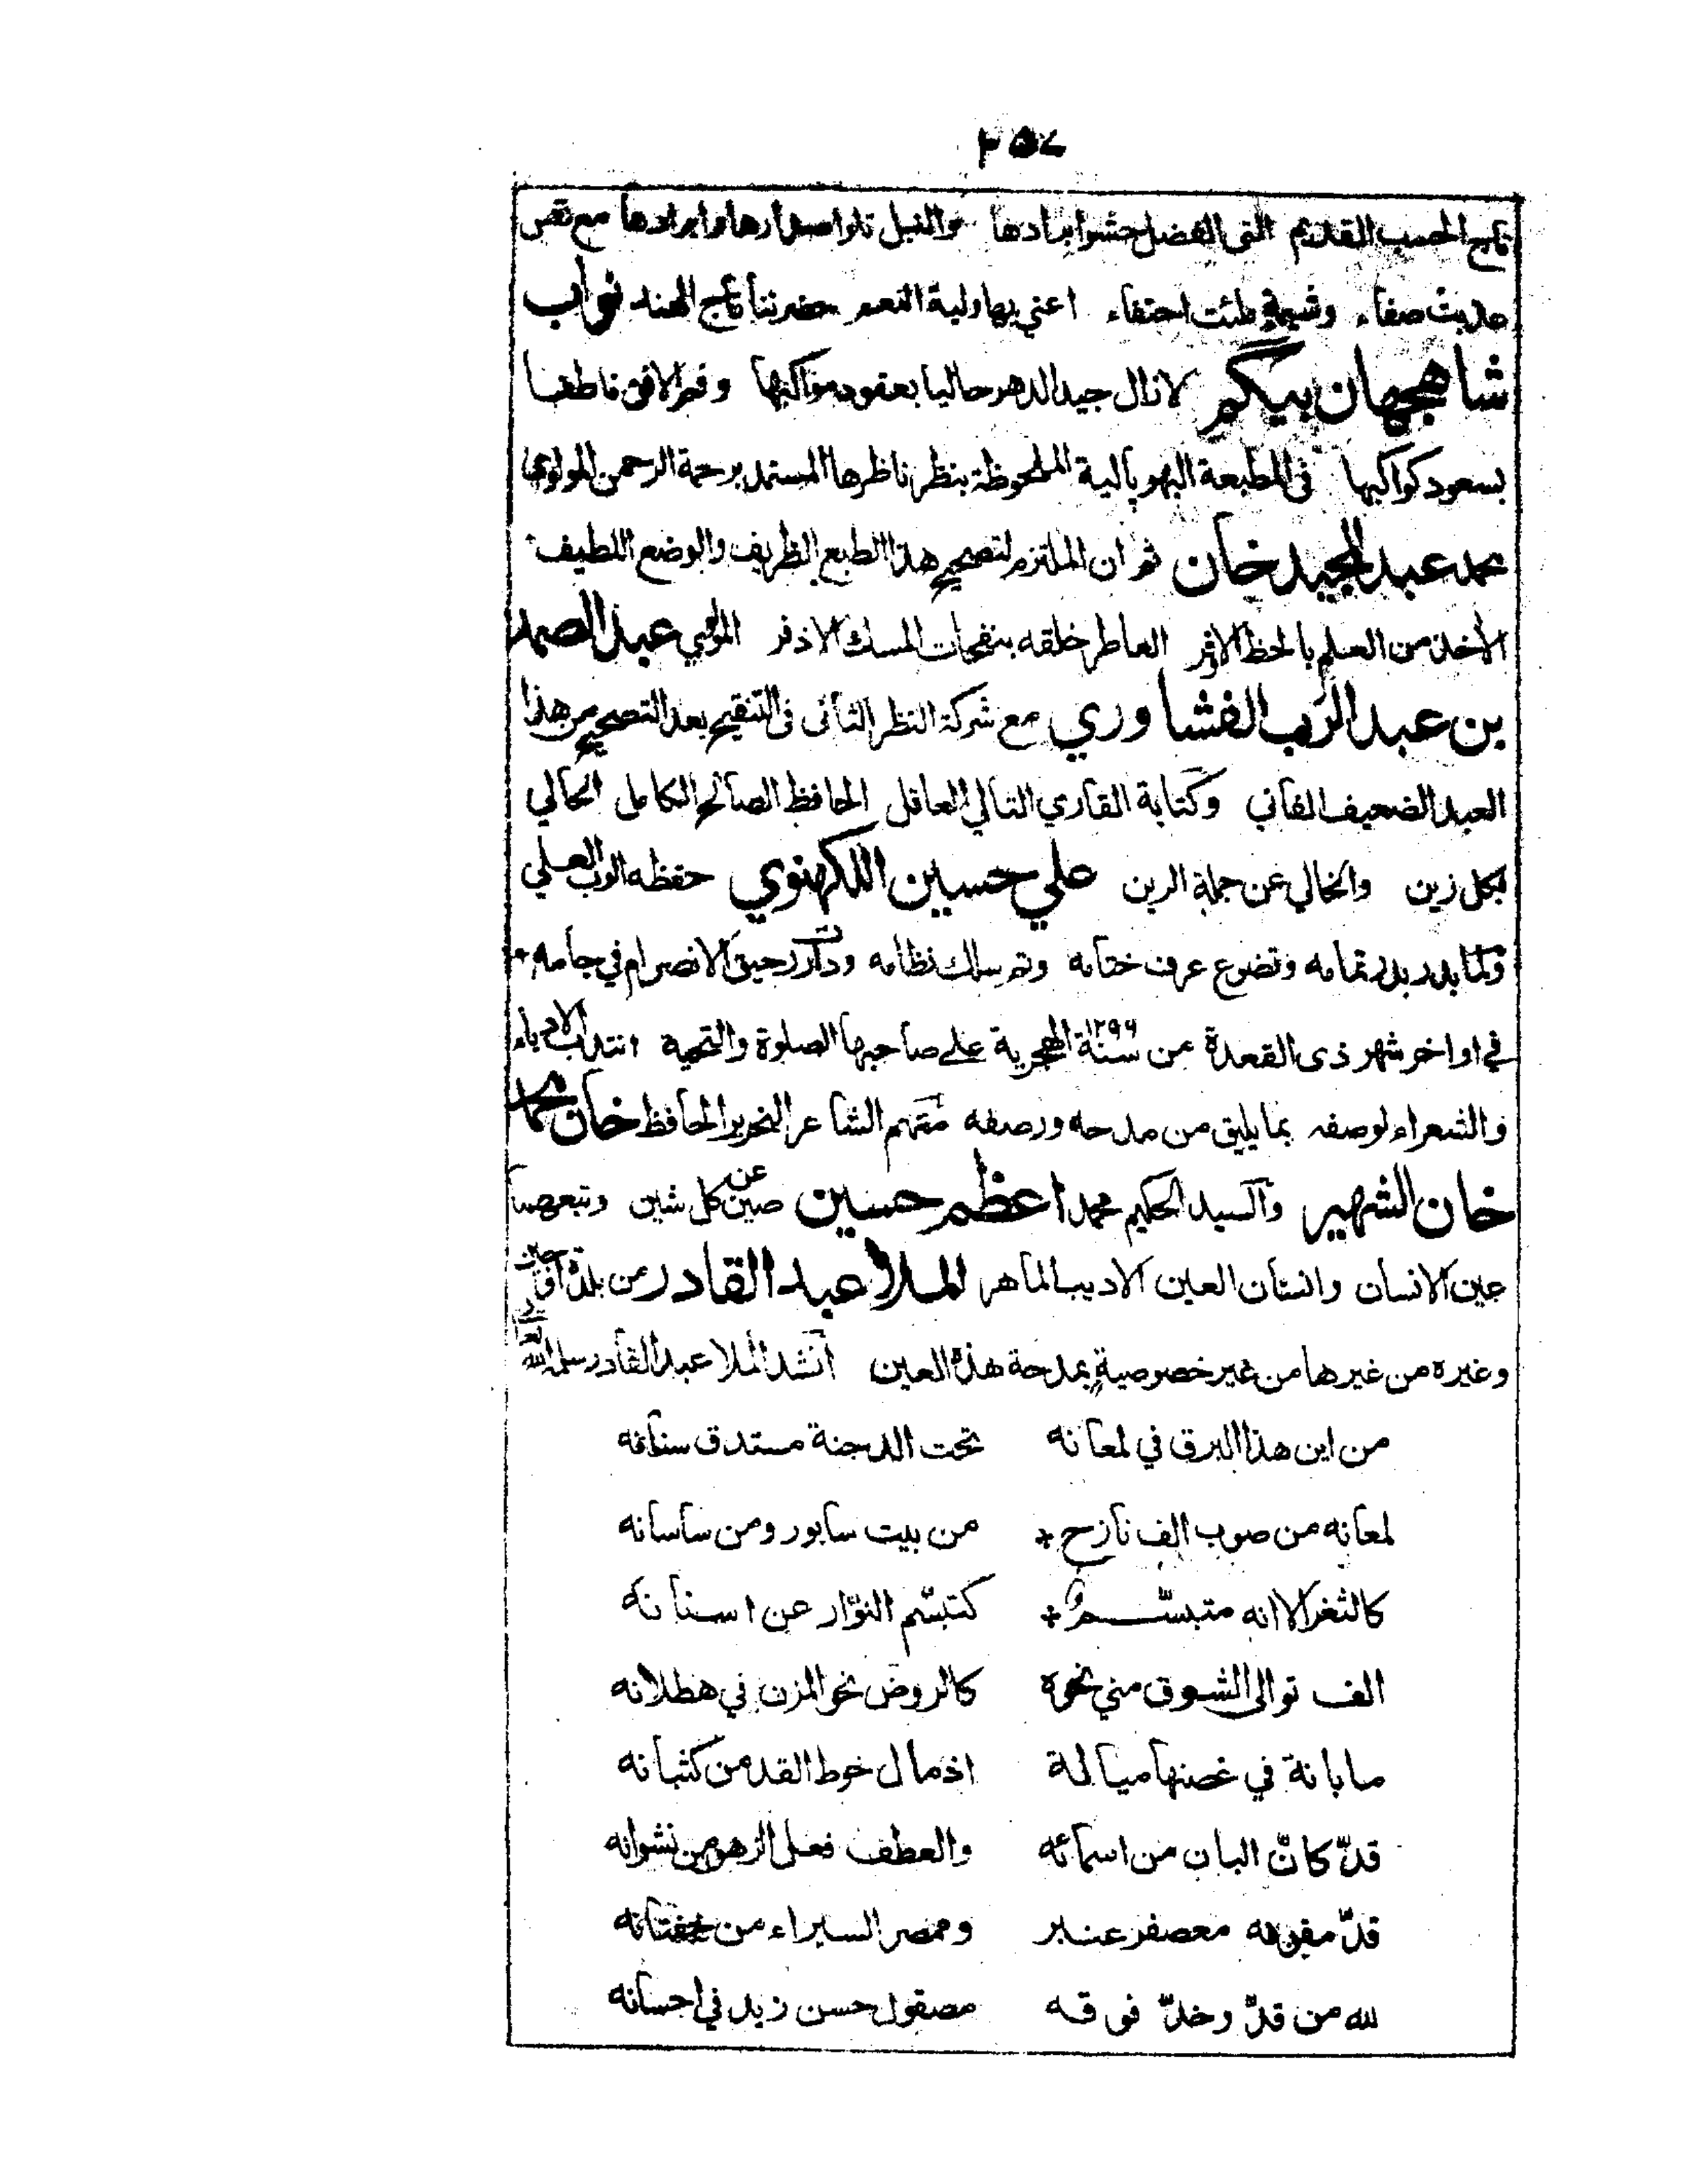 ٢٥٧
تاج الحسب القديم التي الفضل حشو ابرادها والنبل تلو اصدارها وايرادها مع نقص
حديث صفاء وشيمة ملئت احتفاء اعني بها ولية النعم حضرتنا تاج الهند نواب
شاهجهان بيگم لازال جيد الدهر حاليا بعقود مواكبها وفم الافق ناطقا
بسعود كواكبها في المطبعة البهوپالية الملحوظة بنظر ناظرها المستمد برحمة الرحمن المولوي
محمد عبد المجيد خان ثم ان الملتزم لتصحيح هذا الطبع الظريف والوضع اللطيف
الأخذ من العلم بالحظ الاوفر العاطر خلقه بنفحات المسك الاذفر المولوي عبد الصمد
بن عبد الرب الفشاوري مع شركة النظر الثاني في التنقيح بعد التصحيح من هذا
العبد الضعيف الفاني وكتابة القاري التالي العاقل الحافظ الصالح الكامل الحالي
بكل زين والخالي عن جملة الرين علي حسين اللكهنوي حفظه الرب العلي
ولما بدر بدر تمامه وتضوع عرف ختامه وتم سلك نظامه ودارت رحيق الانصرام في جامه
في اواخر شهر ذي القعدة من سنة ١٢٩٦ الهجرية على صاحبها الصلوة والتحية انتدب الادباء
والشعراء لوصفه بما يليق من مدحه ورصفه منهم الشاعر النحرير الحافظ خان محمد
خان الشهير والسيد الحكيم محمد اعظم حسين صين عن كل شين وتبعهما
عين الانسان وانسان العين الاديب الماهر الملا عبد القادر من بلدة
وغيره من غيرها من غير خصوصية بمدحة هذه العين انشد الملا عبد القادر سلمه الله تعالى
من اين هذا البرق في لمعانه تحت الدجنة مستدق سنانه
لمعانه من صوب الف نازح * من بيت سابور ومن ساسانه
كالثغر الا انه متبسّم * كتبسّم النوّار عن اسنانه
الف توالى الشوق مني نحوه كالروض نحو المزن في هطلانه
ما بانة في غصنها ميالة اذ مال خوط القد من كثبانه
قدّ كانّ البان من اسمائه والعطف فعل الزهو من نشوانه
قدّ معصفر عنبر وممصر السيراء من خفتانه
لله من قدّ وخدّ فوقه مصقول حسن زيد في احسانه